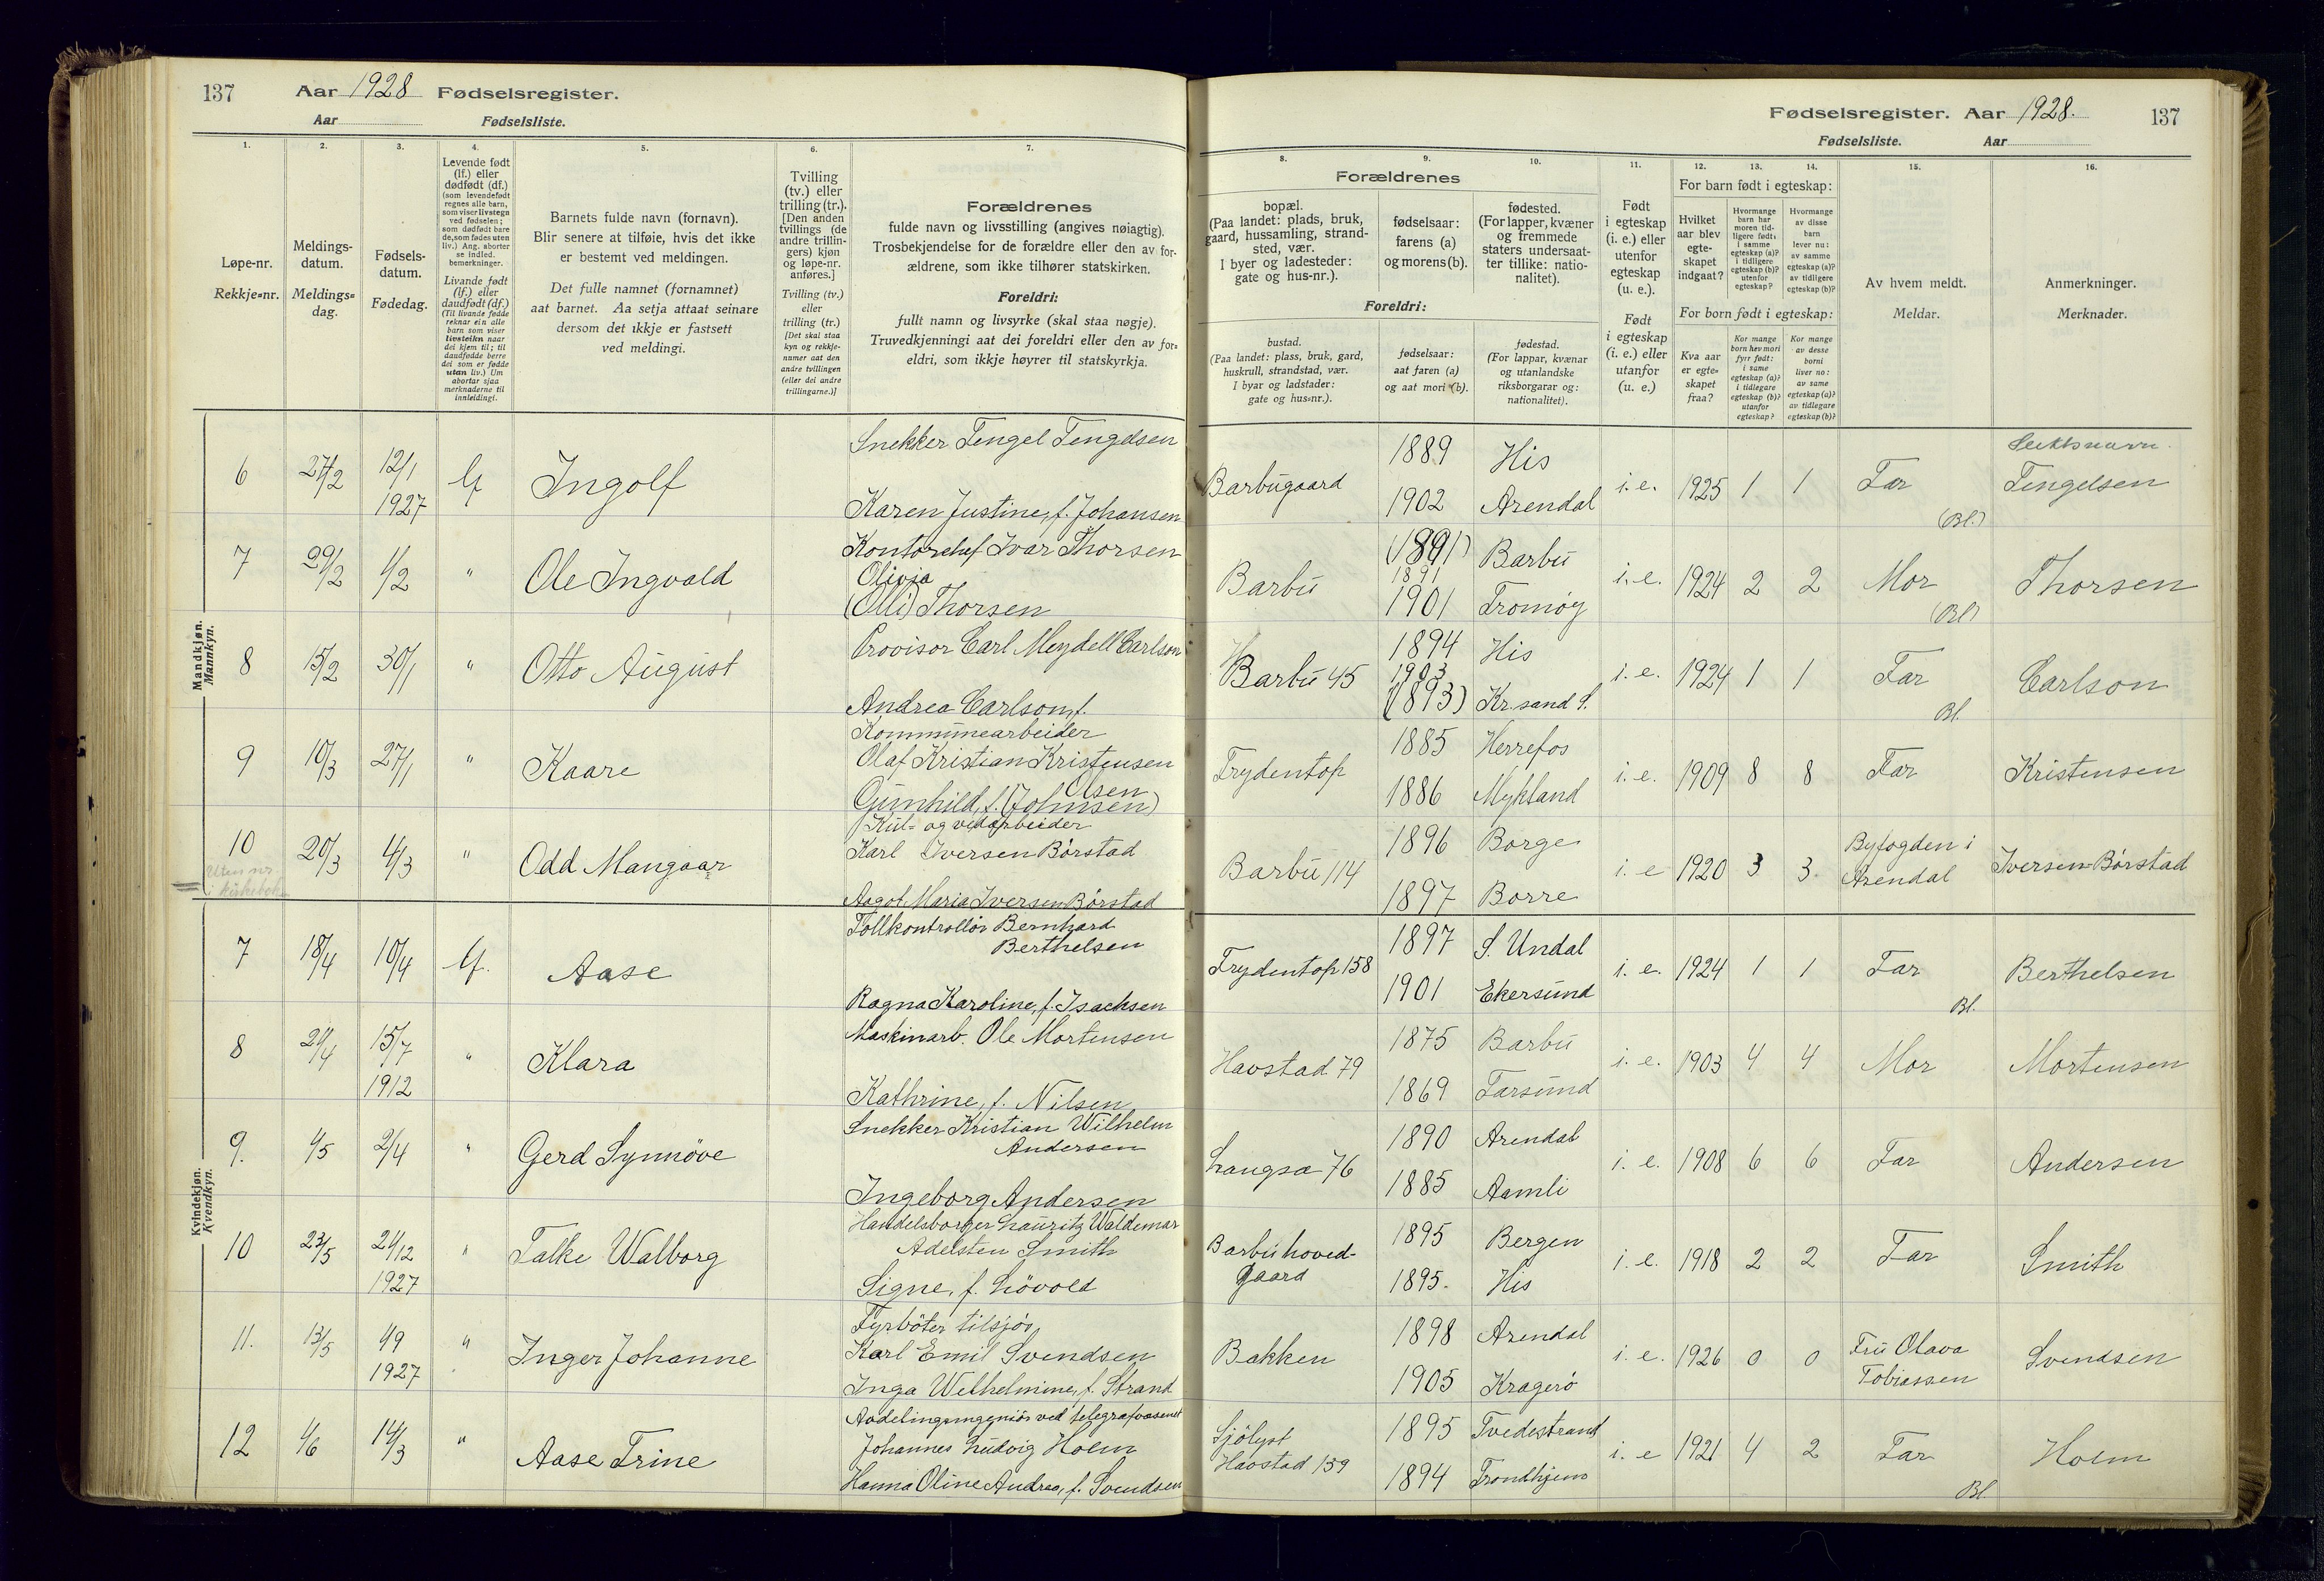 137 Aar 1928 Fødselsregister.
Aar Fødselsliste.
Fødselsregister. Aar 1928. 137
Fødselsliste. Aar
1. 2. 3. 4. 5. 6. 7.
Løpe-nr.
Rekkje=nr.
Meldings-
datum.
Meldings=
dag.
Fødsels-
datum.
Fødedag.
Levende født
(lf.) eller
dødfødt (df.)
(som levendefødt
regnes alle barn,
som viser livstegn
ved fødselen;
som dødfødt bare
de, som fødes uten
liv.) Ang. aborter
se indled.
bemerkninger.
Livande født
(lf.) eller
daudfødt (df.)
(Til livande fødde
reknar ein alle
barn som viser
livsteikn naar
dei kjem til; til
daudfødde berre
dei som er fødde
utan liv.) Um
abortar sjaa
merknaderne til
innleidingi.
Barnets fulde navn (fornavn).
Blir senere at tilføie, hvis det ikke
er bestemt ved meldingen.
Det fulle namnet (fornamnet)
aat barnet. Aa setja attaat seinare
dersom det ikkje er fastsett
ved meldingi.
Tvilling
(tv.) eller
trilling (tr.).
[Den anden
tvillings (de
andre trillin-
gers) kjøn
og løpe-nr.
anføres.]
Tvilling (tv.)
eller
trilling (tr.)
[Det skal staa
kyn og rekkje-
numer aat den
andre tvillingen
(eller dei andre
trillingarne.)]
Forældrenes
fulde navn og livsstilling (angives nøiagtig).
Trosbekjendelse for de forældre eller den av for-
ældrene, som ikke tilhører statskirken.
Foreldri:
fullt namn og livsyrke (skal staa nøgje).
Truvedkjenningi aat dei foreldri eller den av for=
eldri, som ikkje høyrer til statskyrkja.
8. 9. 10. 11. 12. 13. 14. 15. 16.
Forældrenes
bopæl.
(Paa landet: plads, bruk,
gaard, hussamling, strand-
sted, vær.
I byer og ladesteder:
gate og hus-nr.).
fødselsaar:
farens (a)
og morens (b).
fødested.
(For lapper, kvæner
og fremmede
staters undersaat-
ter tillike: natio-
nalitet).
Foreldri:
bustad.
(Paa landet: plass, bruk, gard,
huskrull, strandstad, vær.
I byar og ladstader:
gate og hus=nr.).
fødselsaar:
aat faren (a)
og aat mori (b).
fødestad.
(For lappar, kvænar
og utanlandske
riksborgarar og:
nationalitet).
Født
i egteskap
(i. e.) eller
utenfor
egteskap
(u. e.).
Født
i egteskap
(i. e.) eller
utanfor
(u. e.)
For barn født i egteskap:
Hvilket
aar blev
egte-
skapet
indgaat?
Hvormange
barn har
moren tid-
ligere født:
i samme
egteskap (a)?
i tidligere
egteskap (b)?
utenfor
egteskap?
Hvormange
av disse
barn
lever nu:
av samme
egteskap (a)?
av tidligere
egteskap (b)?
For born født i egteskap:
Kva aar
er egte=
skapet
fraa?
Kor mange
born hev mori
fyrr født:
i same
egteskap (a)?
i tidlegare
egteskap (b)?
utanfor
egteskap?
Kor mange
av desse
borni
liver no:
av same
egteskap (a)?
av tidlegare
egteskap (b)?
Av hvem meldt.
Meldar.
Anmerkninger.
Merknader.
Mandkjøn.
Mannkyn.
Snekker Tengel Tengelsen 1889 His Slektsnavn.
6 27/2 12/1 lf Ingolf Barbugaard i.e. 1925 1 1 Far Tengelsen
1927 Karen Justine, f. Johansen 1902 Arendal (Bl.)
Kontorchef Ivar Thorsen (1891) Barbu
7 29/2 1/2 " Ole Ingvald Olivia Barbu 1891 i.e. 1924 2 2 Mor Thorsen
(Olli) Thorsen 1901 Tromøy (Bl)
Provisor Carl Meydell Carlson 1894 His
8 15/2 30/1 " Otto August Barbu 45 1903 i.e. 1924 1 1 Far Carlson
Andrea Carlson, f. (1893) Kr.sand S. Bl.
Kommunearbeider 1885 Herrefos
9 10/3 27/1 " Kaare Olaf Kristian Kristensen Frydentop i.e. 1909 8 8 Far Kristensen
Olsen
Gunhild, f. (Johnsen) 1886 Mykland
Kul- og vedarbeider
10 20/3 4/3 " Odd Mangaar Karl Iversen Børstad Barbu 114 1896 Borge i.e 1920 3 3. Byfogden i Arendal Iversen-Børstad
Uten nr.
i kirkebok
Aagot Maria Iversen Børstad 1897 Borre
Kvindekjøn.
Kvendkyn.
Tollkontrollør Bernhard
Berthelsen 1897 S. Undal
7 18/4 10/4 lf. Aase Frydentop 158 i.e. 1924 1 1 Far Berthelsen
Ragna Karoline, f. Isachsen 1901 Ekersund Bl.
Maskinarb. Ole Mortensen 1875 Barbu
8 21/4 15/7 " Klara Havstad 79 i.e. 1903 4 4 Mor Mortensen
1912 Kathrine, f. Nilsen 1869 Farsund
Snekker Kristian Wilhelm
Andersen 1890 Arendal
9. 1/5 2/4 " Gerd Synnöve Langsæ 76 i.e. 1908 6 6 Far Andersen
Ingeborg Andersen 1885 Aamli
Handelsborger Lauritz Waldemar
Adelsten Smith 1895 Bergen
10 23/5 24/12 " Falke Walborg Barbu hoved-
gaard i.e. 1918 2 2 Far Smith
1927 Signe, f. Lövold 1895. His
Fyrböter tilsjös, 1898 Arendal
11. 13/5 1/9 " Inger Johanne Karl Emil Svendsen Bakken i.e. 1926 0 0 Fru Olava
Tobiassen Svendsen
1927 Inga Welhelmine, f. Strand 1905 Kragerö
Avdelingsingeniör ved telegrafvæsenet 1895 Tvedestrand
12 1/6 14/3 " Aase Trine Johannes Ludvig Holm Sjölyst
Havstad 159 i.e 1921 4 2 Far Holm
Hanna Oline Andrea, f. Svendsen 1894 Trondhjem Bl.